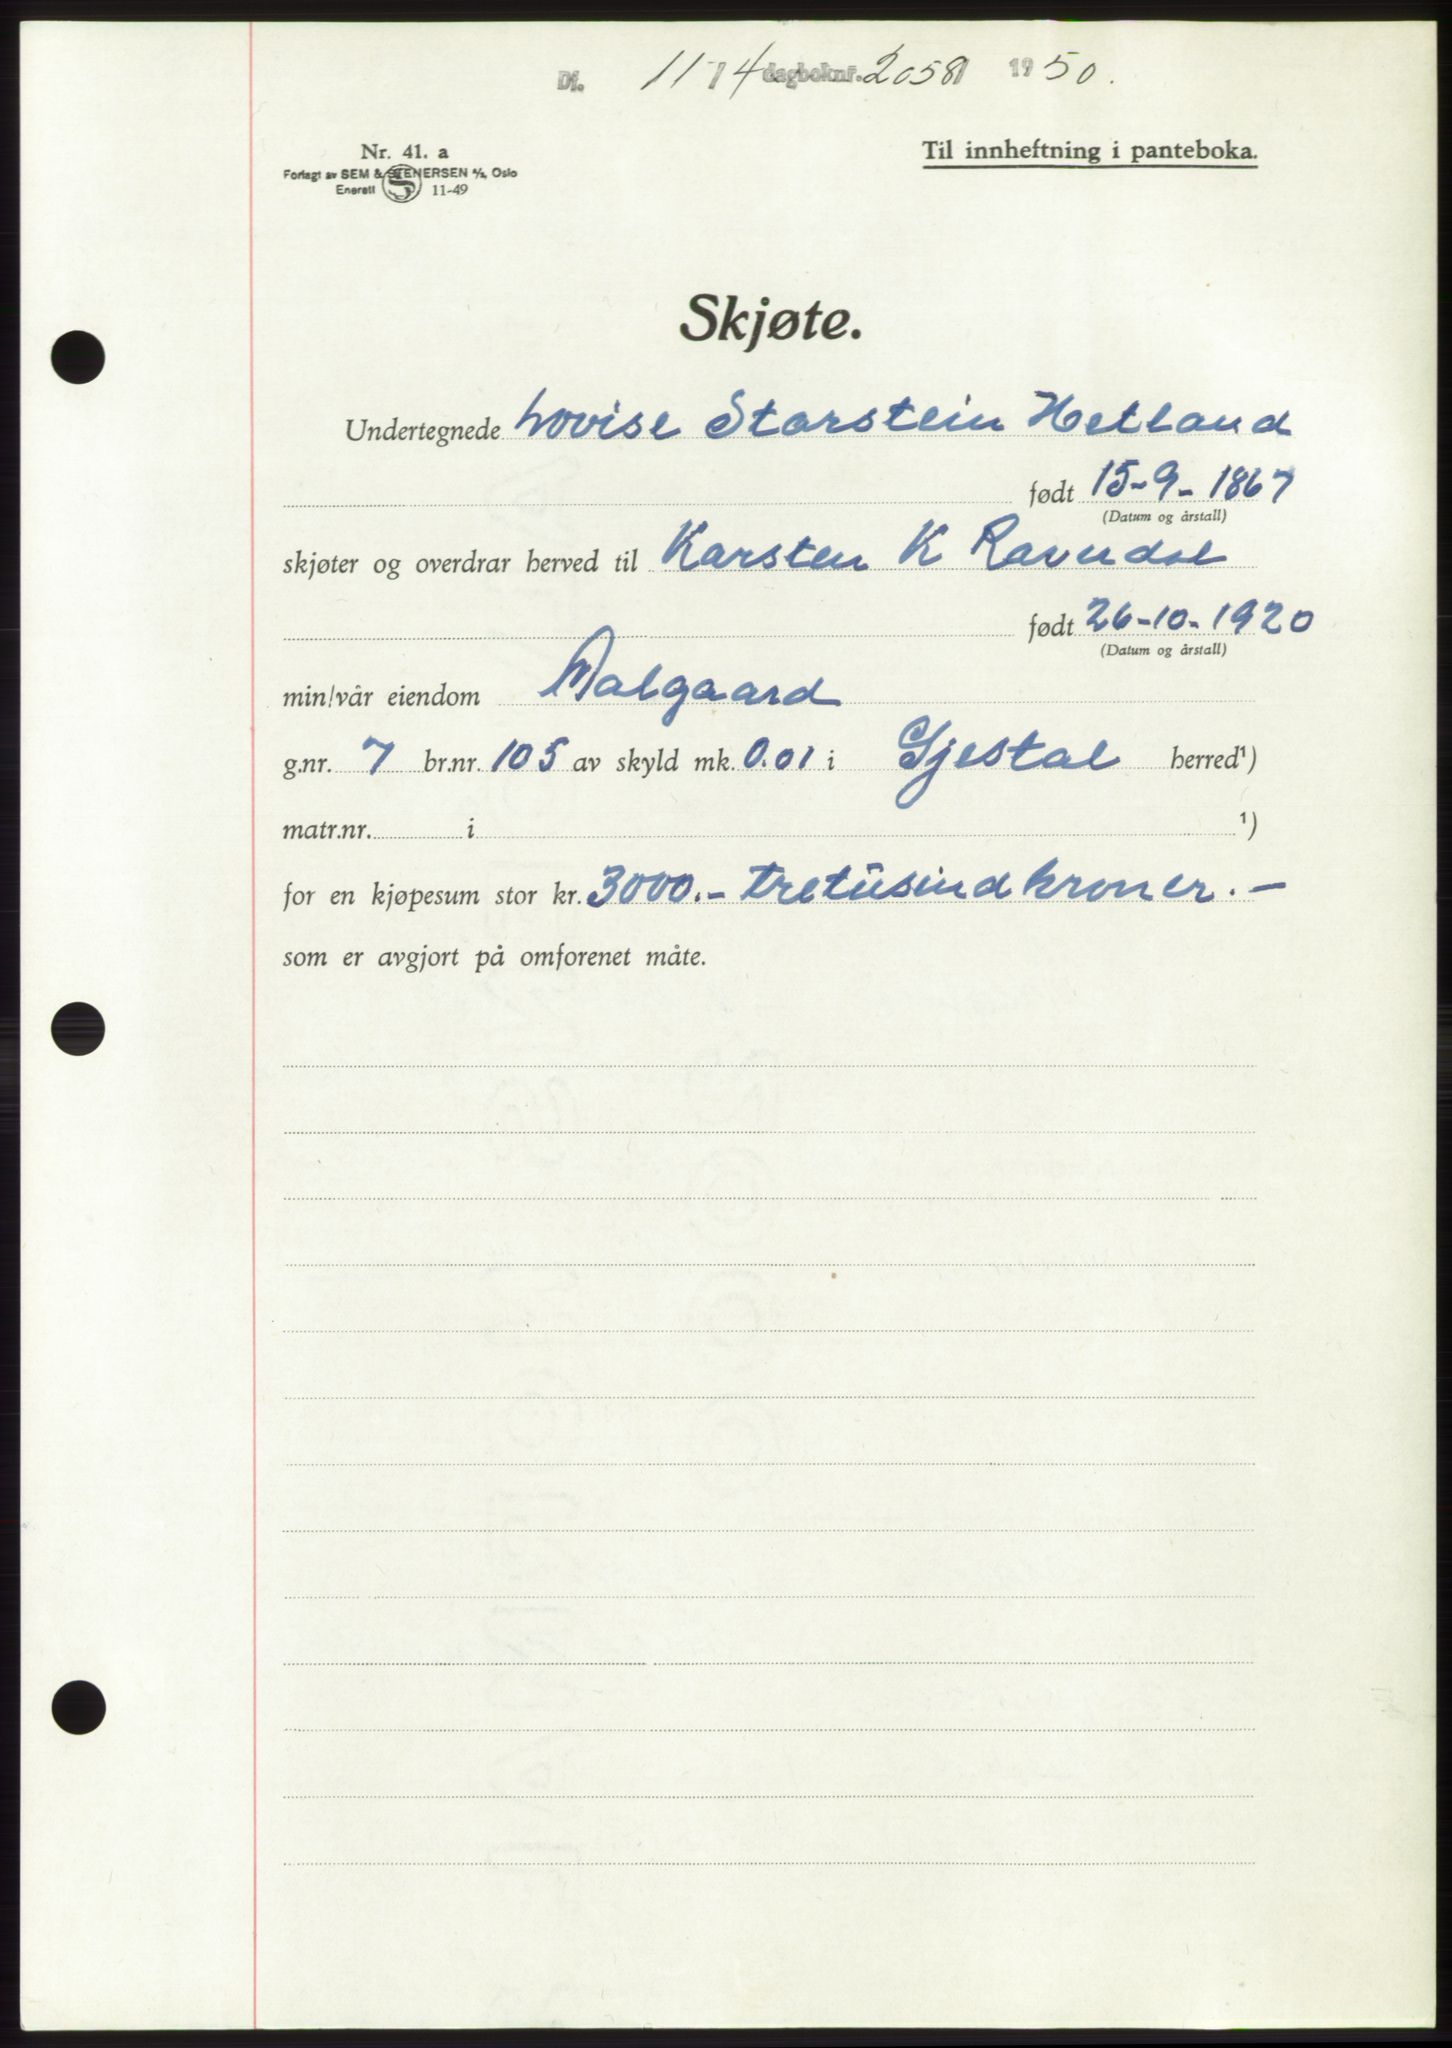 Df. 11-4 dagboknr. 2058 1950.
Nr. 41. a
Forlagt av SEM & STENERSEN A/S, Oslo
Enerett 11-49
Til innheftning i panteboka.
Skjøte.
Undertegnede Lovise Storstein Hetland
født 15-9-1867
(Datum og årstall)
skjøter og overdrar herved til Karsten K Ravndal
født 26-10-1920
(Datum og årstall)
min/vår eiendom Aalgaard
g.nr. 7 br.nr. 105 av skyld mk. 0.01 i Gjestal herred¹)
matr.nr. i ¹)
for en kjøpesum stor kr. 3000.- tretusind kroner.-
som er avgjort på omforenet måte.